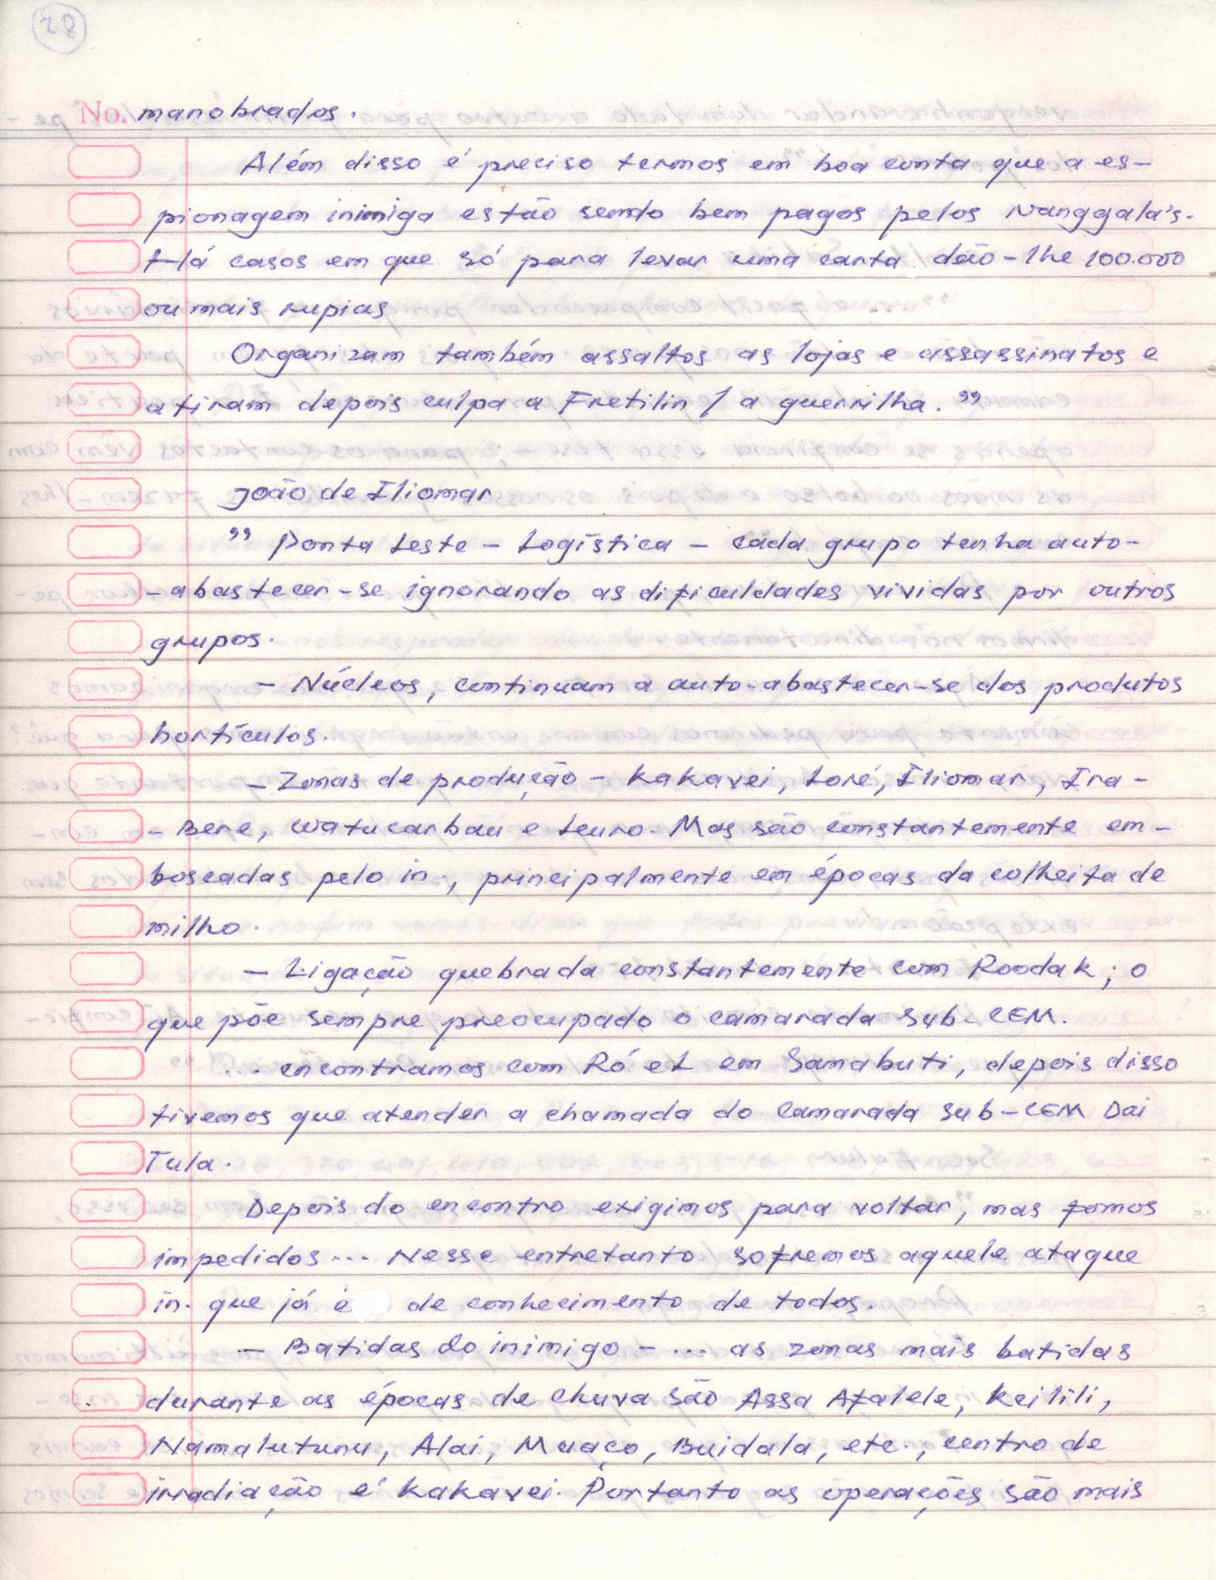 28
No. manobrados.
Além disso é preciso termos em boa conta que a es-
pionagem inimiga estão sendo bem pagos pelos Nanggala's.
Há casos em que só para levar uma carta dão-lhe 100.000
ou mais rupias
Organizam também assaltos as lojas e assassinatos e
atiram depois culpa a Fretilin / a guerrilha."
João de Iliomar
" Ponta Leste - Logística - cada grupo tenha auto-
-abastecer-se ignorando as dificuldades vividas por outros
grupos.
- Núcleos, continuam a auto-abastecer-se dos produtos
hortículos.
- Zonas de produção - Kakavei, Loré, Iliomar, Ira-
- Bere, Watucarbau e Leuro. Mas são constantemente em-
boscadas pelo in., principalmente em épocas da colheita de
milho.
- Ligação quebrada constantemente com Roodak; o
que põe sempre preocupado o camarada Sub-CEM.
... encontramos com Ró eL em Samabuti, depois disso
tivemos que atender a chamada do Camarada Sub-CEM Dai
Tula.
Depois do encontro exigimos para voltar, mas fomos
impedidos ... Nesse entretanto sofremos aquele ataque
in. que já é de conhecimento de todos.
- Batidas do inimigo - ... as zonas mais batidas
durante as épocas de chuva são Assa Afalele, Keilili,
Namalutunu, Alai, Muaço, Buidala, etc., centro de
irradiação é Kakavei. Portanto as operações são mais